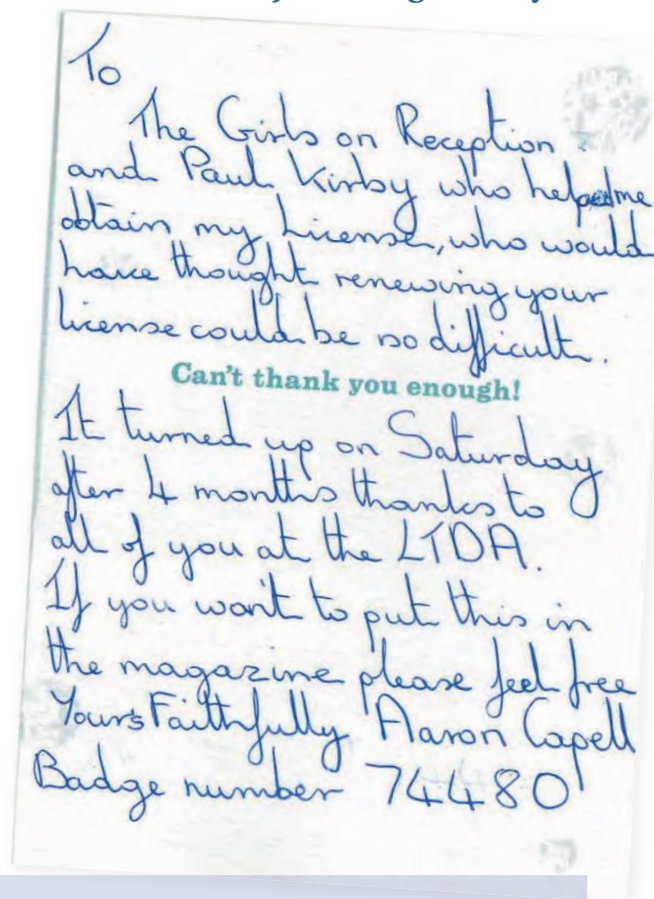 To
The Girls on Reception
and Paul Kirby who helped me
obtain my License, who would
have thought renewing your
license could be so difficult.
Can't thank you enough!
It turned up on Saturday
after 4 months thanks to
all of you at the LTDA.
If you want to put this in
the magazine please feel free
Yours Faithfully Aaron Capell
Badge number 74480